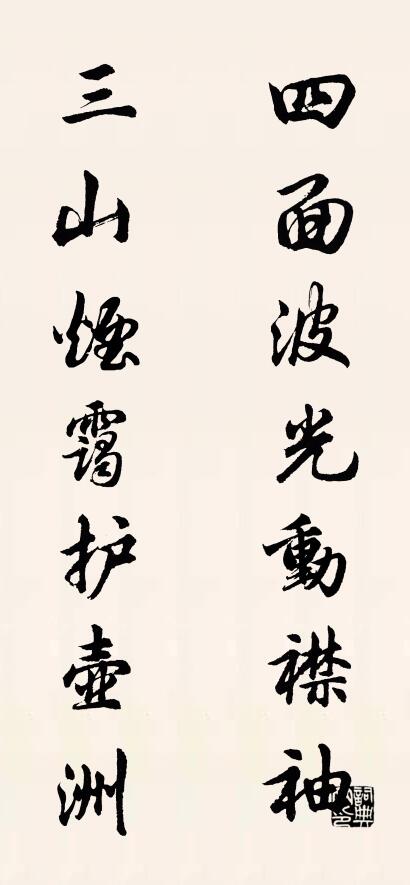 四面波光動襟袖
三山煙靄护壺洲